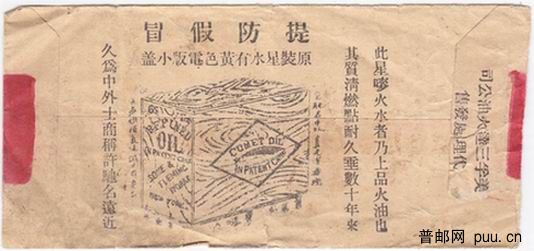 提防假冒
原裝星水有黃色電版小蓋
此星嘜火水者乃上品火油也
其質清燃點耐久垂數十年來
久爲中外士商稱許馳名遠近
REFINED
OIL
IN PATENT CANS
NEW YORK
COMET OIL
IN PATENT CANS
美孚三達火油公司
代理施發售
普邮网 puu.cn